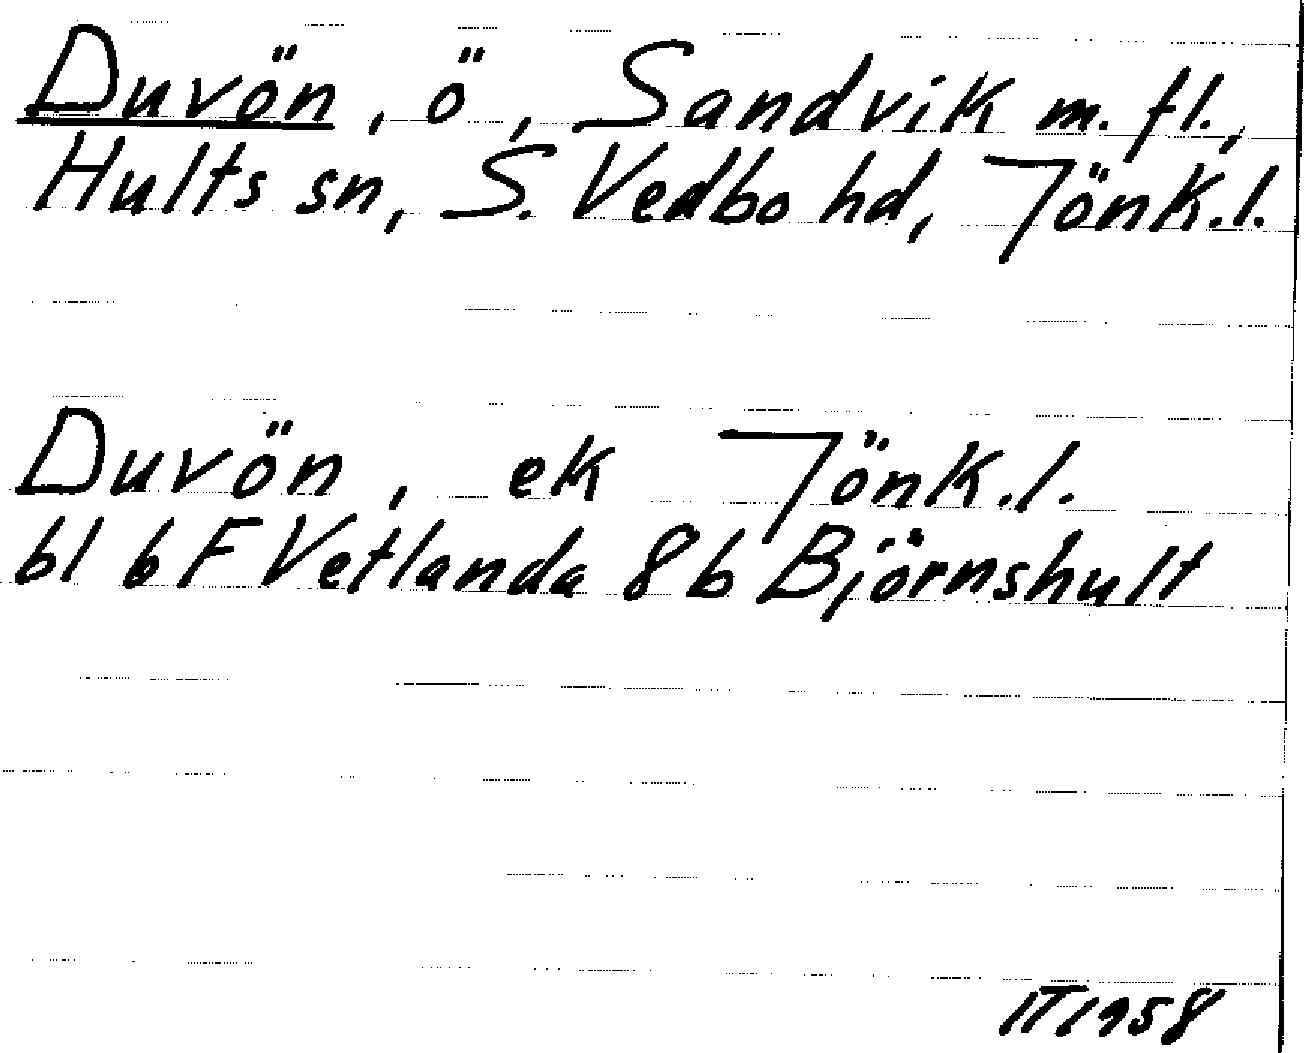 Duvön, ö, Sandvik m. fl.,
Hults sn, S. Vedbo hd, Jönk.l.
Duvön, ek Jönk.l.
bl 6 F Vetlanda 8 b Björnshult
IT 1958